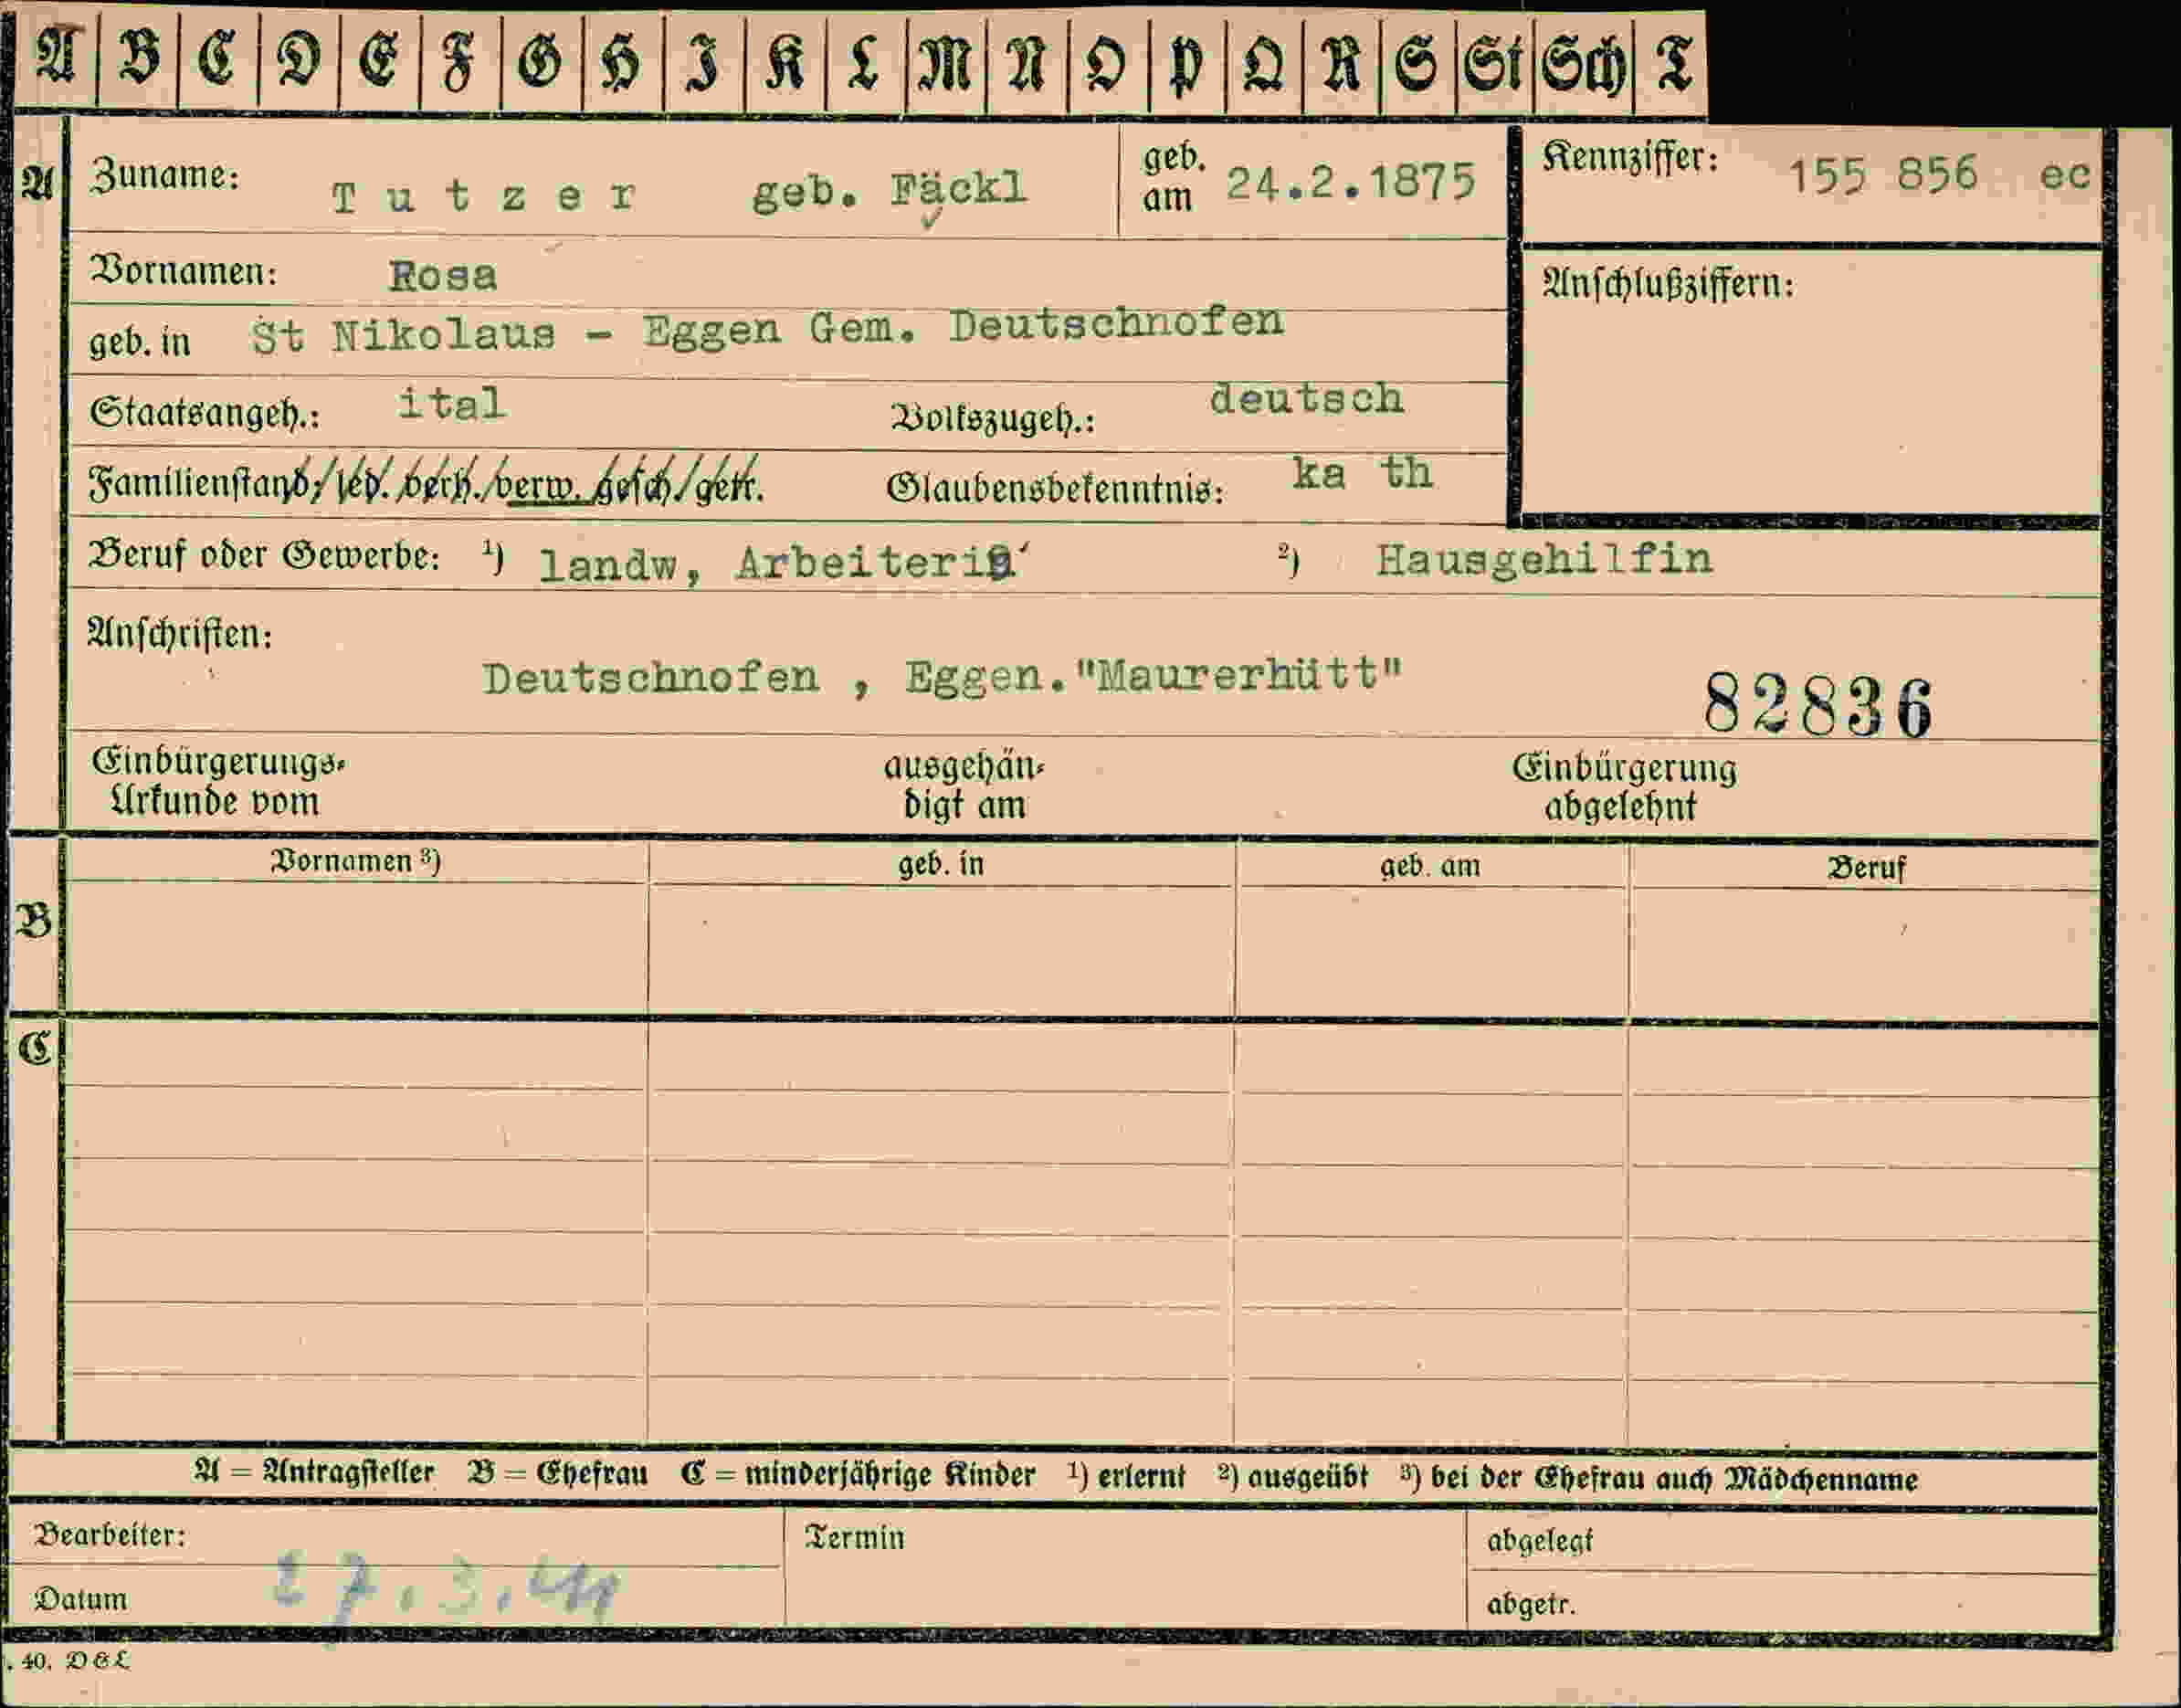 A B C D E F G H J K L M N O P Q R S St Sch T
A Zuname: Tutzer geb. Fäckl geb. am 24.2.1875 Kennziffer: 155 856 ec
Vornamen: Rosa
Anschlußziffern:
geb. in St Nikolaus - Eggen Gem. Deutschnofen
Staatsangeh.: ital Volkszugeh.: deutsch
Familienstand: led. verh. verw. gesch. getr. Glaubensbekenntnis: ka th
Beruf oder Gewerbe: ¹) landw, Arbeiterin ²) Hausgehilfin
Anschriften:
Deutschnofen , Eggen."Maurerhütt"
82836
Einbürgerungs-Urkunde vom ausgehän-digt am Einbürgerung abgelehnt
Vornamen ³) geb. in geb. am Beruf
B
C
A = Antragsteller B = Ehefrau C = minderjährige Kinder ¹) erlernt ²) ausgeübt ³) bei der Ehefrau auch Mädchenname
Bearbeiter: Termin abgelegt
Datum 27.3.41 abgetr.
. 40. D&L